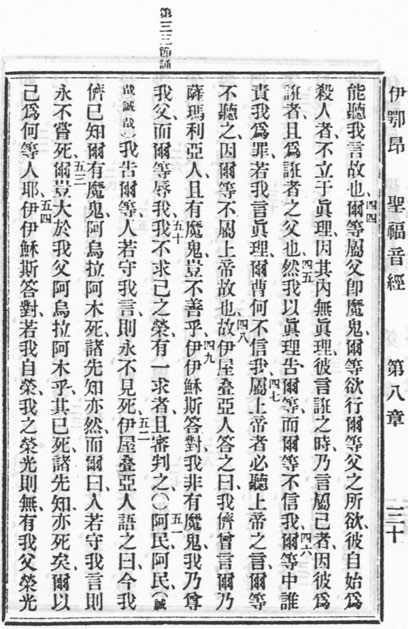 伊鄂昂 聖福音經 第八章 三十
能聽我言故也、四四爾等屬父卽魔鬼、爾等欲行爾等父之所欲、彼自始爲
殺人者、不立于眞理、因其內無眞理、彼言誑之時、乃言屬己者、因彼爲
誑者、且爲誑者之父也、四五然我以眞理吿爾等、而爾等不信我、四六爾等中誰
責我爲罪、若我言眞理、爾曹何不信我、四七屬上帝者、必聽上帝之言、爾等
不聽之、因爾等不屬上帝故也、四八故伊屋疊亞人答之曰、我儕嘗言爾乃
薩瑪利亞人、且有魔鬼、豈不善乎、四九伊伊穌斯答對、我非有魔鬼、我乃尊
我父、而爾等辱我、五十我不求己之榮、有一求者、且審判之、（）五一阿民阿民、（誠
哉誠哉）我吿爾等、人若守我言、則永不見死、五二伊屋疊亞人語之曰、今我
儕已知爾有魔鬼、阿烏拉阿木死、諸先知亦然、而爾曰、人若守我言、則
永不嘗死、五三爾豈大於我父阿烏拉阿木乎、其已死、諸先知亦死矣、爾以
己爲何等人耶、五四伊伊穌斯答對、若我自榮、我之榮光則無、有我父榮光
第三三節誦